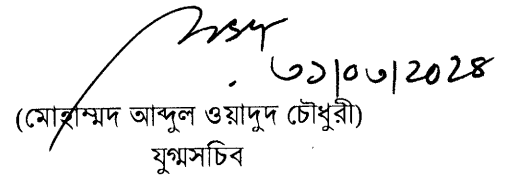 ৩১/০৩/২০২৪
(মোহাম্মদ আব্দুল ওয়াদুদ চৌধুরী)
যুগ্মসচিব